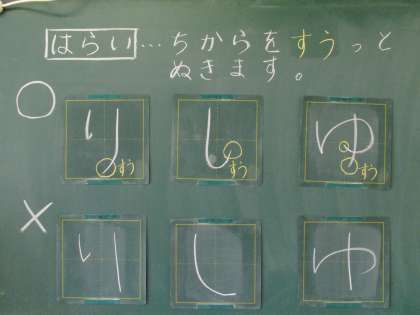 はらい…ちからをすうっと
ぬきます。
○
り し ゆ
すう すう すう
×
り し ゆ